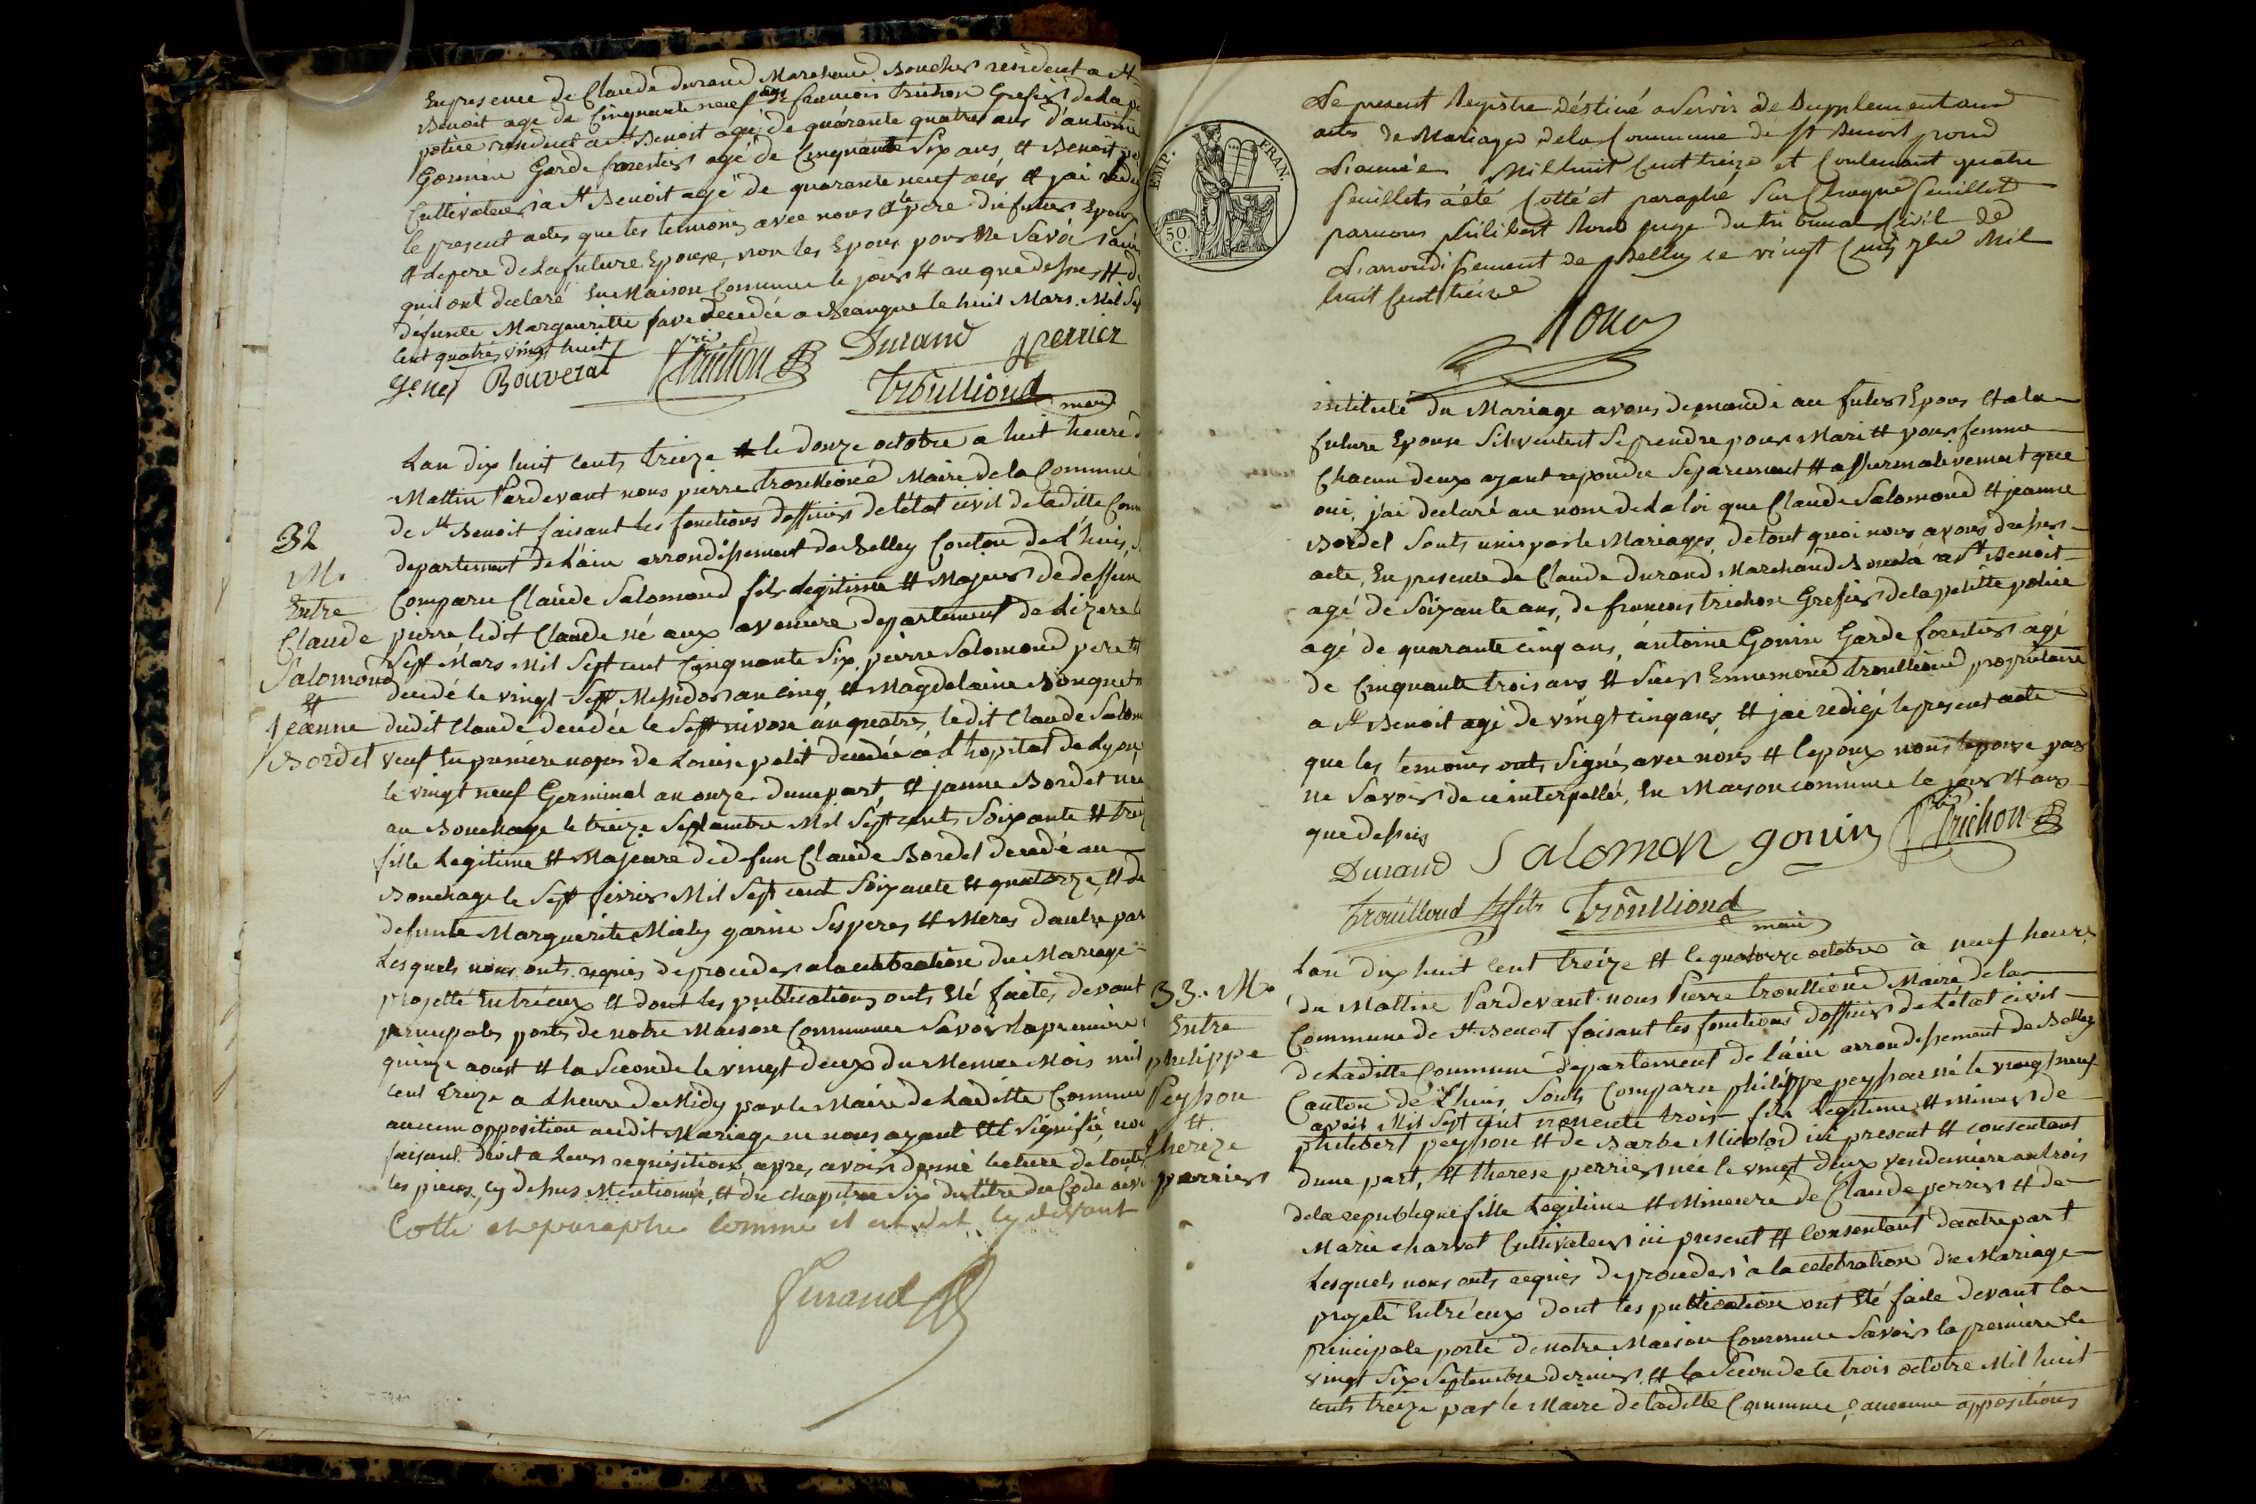 En presence de Claude durand Marchand Boucher resident a St
Benoit agé de Cinquante neuf ans francois trichon Grefier de la pe
police resident a St Benoit agé de quarante quatre ans d'antoine
Gonnin Garde forestier agé de Cinquante Six ans & Benoit
Cultivateur a St Benoit agé de quarante neuf ans & jai redi
le present acte que les temoins avec nous & le pere du futur Epoux
& le pere de la future Epouse, non les Epoux pour ne Savoir
quil ont declaré En Maison Commune le jour & an que dessus & de
defunte Marguerite fave decedée a Beauque le huit Mars Mil Sep
Cent quatre vingt huit
genet Bouverat fris trichon Durand perrier
Trouilloud
maire
Lan dix huit cents treize & le douze octobre a huit heure d
Mattin Pardevant nous pierre trouilloud Maire de la Commune
de St Benoit faisant les fonctions d'officier de l'état civil de la ditte Com
departement de L'ain arrondissement de Belley Conton de L'huis,
32
M.
Entre
Claude
Salomond
&
jeanne
Bordel
Comparu Claude Salomond fils Legitime & Majeur de deffun
pierre ledit Claude né aux aveniere departement de Lizere l
Sept Mars Mil Sept cent Cinquante Six, pierre Salomond pere
decedé le vingt Sept Messidor an cinq & Magdelaine Bouquet
dudit Claude decedée le Sept nivose an quatre, ledit Claude Salom
veuf En premiere noces de Louise petit decedée à L'hopital de Lyon,
le vingt neuf Germinal an onze. dune part & jeanne Bordel née
au Bouchage le treize Septembre Mil Sept cents Soixante & trei
fille Legitime & Majeure de defun Claude Bordel decedé au
Bouchage le Sept fevrier Mil Sept cent Soixante & quatorze, & de
defunte Marguerite garin Ses peres & Meres dautre par
Lesquels nous onts requies de proceder a la celebration du Mariage
projetté Entréeux & dont les publications onts Eté faites devant
principale porte de notre Maison Commune Savoir la premiere
quinze aoust & la Seconde le vingt deux du Meme Mois mil
cent treize a Lheure de Midy par le Maire de Laditte Commune
aucune opposition audit Mariage ne nous ayant Eté Signifié, nou
faisant droit a Leurs requisitions, apres avoir donné lecture de toute
les pieces cy dessus Mentionné, & du chapitre Six du titre du Code civi
Cotté et paraphé Comme il est dit cy devant
Durand
EMP. FRAN.
50 C.
Le present Registre déstiné a Servir de Supplement aux
actes de Mariages de la Commune de St Benoit pour
L'année Mil huit Cent treize et Contenant quatre
feuillets a été Cotté et paraphé Sur Chaque feuillet
par nous philibert Roux juge du tribunal Civil de
L'arrondissement de Belley ce vingt Cinq 7bre Mil
huit Cent treize
Roux
intitulé du Mariage avons demandé au futur Epoux & a la
future Epouse Sils veulent Se prendre pour Mari & pour femme
Chacun deux ayant repondu Separement & affirmativement que
oui, j'ai declaré au nom de La loi que Claude Salomond & jeanne
Bordel Sonts unis par le Mariages, de tout quoi nous avons dressés
acte, En presence de Claude durand Marchand a St Benoit
agé de Soixante ans, de francois trichon Grefier de la petitte police
agé de quarante cinq ans, antoine Gonin Garde forestier agé
de Cinquante trois ans & Sieur Ennemond trouilloud propriétaire
a St Benoit agé de vingt cinq ans & jai redigé le present acte
que les temoins onts Signés avec nous & lepoux non lepouse pour
ne Savoir de ce interpellée, En Maison commune le jour & an
que dessus
Durand Salomon gonin fris trichon
Trouilloud fils Trouilloud
maire
Lan dix huit cent treize & le quatorze octobre à neuf heure
du Mattin Pardevant nous Pierre trouilloud Maire de la
Commune de St Benoit faisant les fonctions d'officier de L'état civil
de Laditte Commune departement de L'ain arrondissement de Belley
33. M.
Entre
philippe
Peysson
&
thereze
perrier
Canton de L'huis, Sonts Comparu philippe peysson né le vingt neuf
avril Mil Sept cent nonente trois fils Legitime & mineur de
philibert peysson & de Barbe Micolod ici present & consentant
dune part, & therese perrier née le vingt deux vendemiere an trois
de la republique fille Legitime & Mineure de Claude perrier & de
Marie charvet Cultivateur ici present & Consentant dautre part
Lesquels nous onts requies de proceder a la celebration du Mariage
projeté Entréeux dont les publication ont Eté faite devant la
principale porte de notre Maison Commune Savoir la premiere le
vingt Six Septembre dernier & la Seconde le trois octobre Mil huit
cents treize par le Maire de laditte Commune, aucunne oppositions